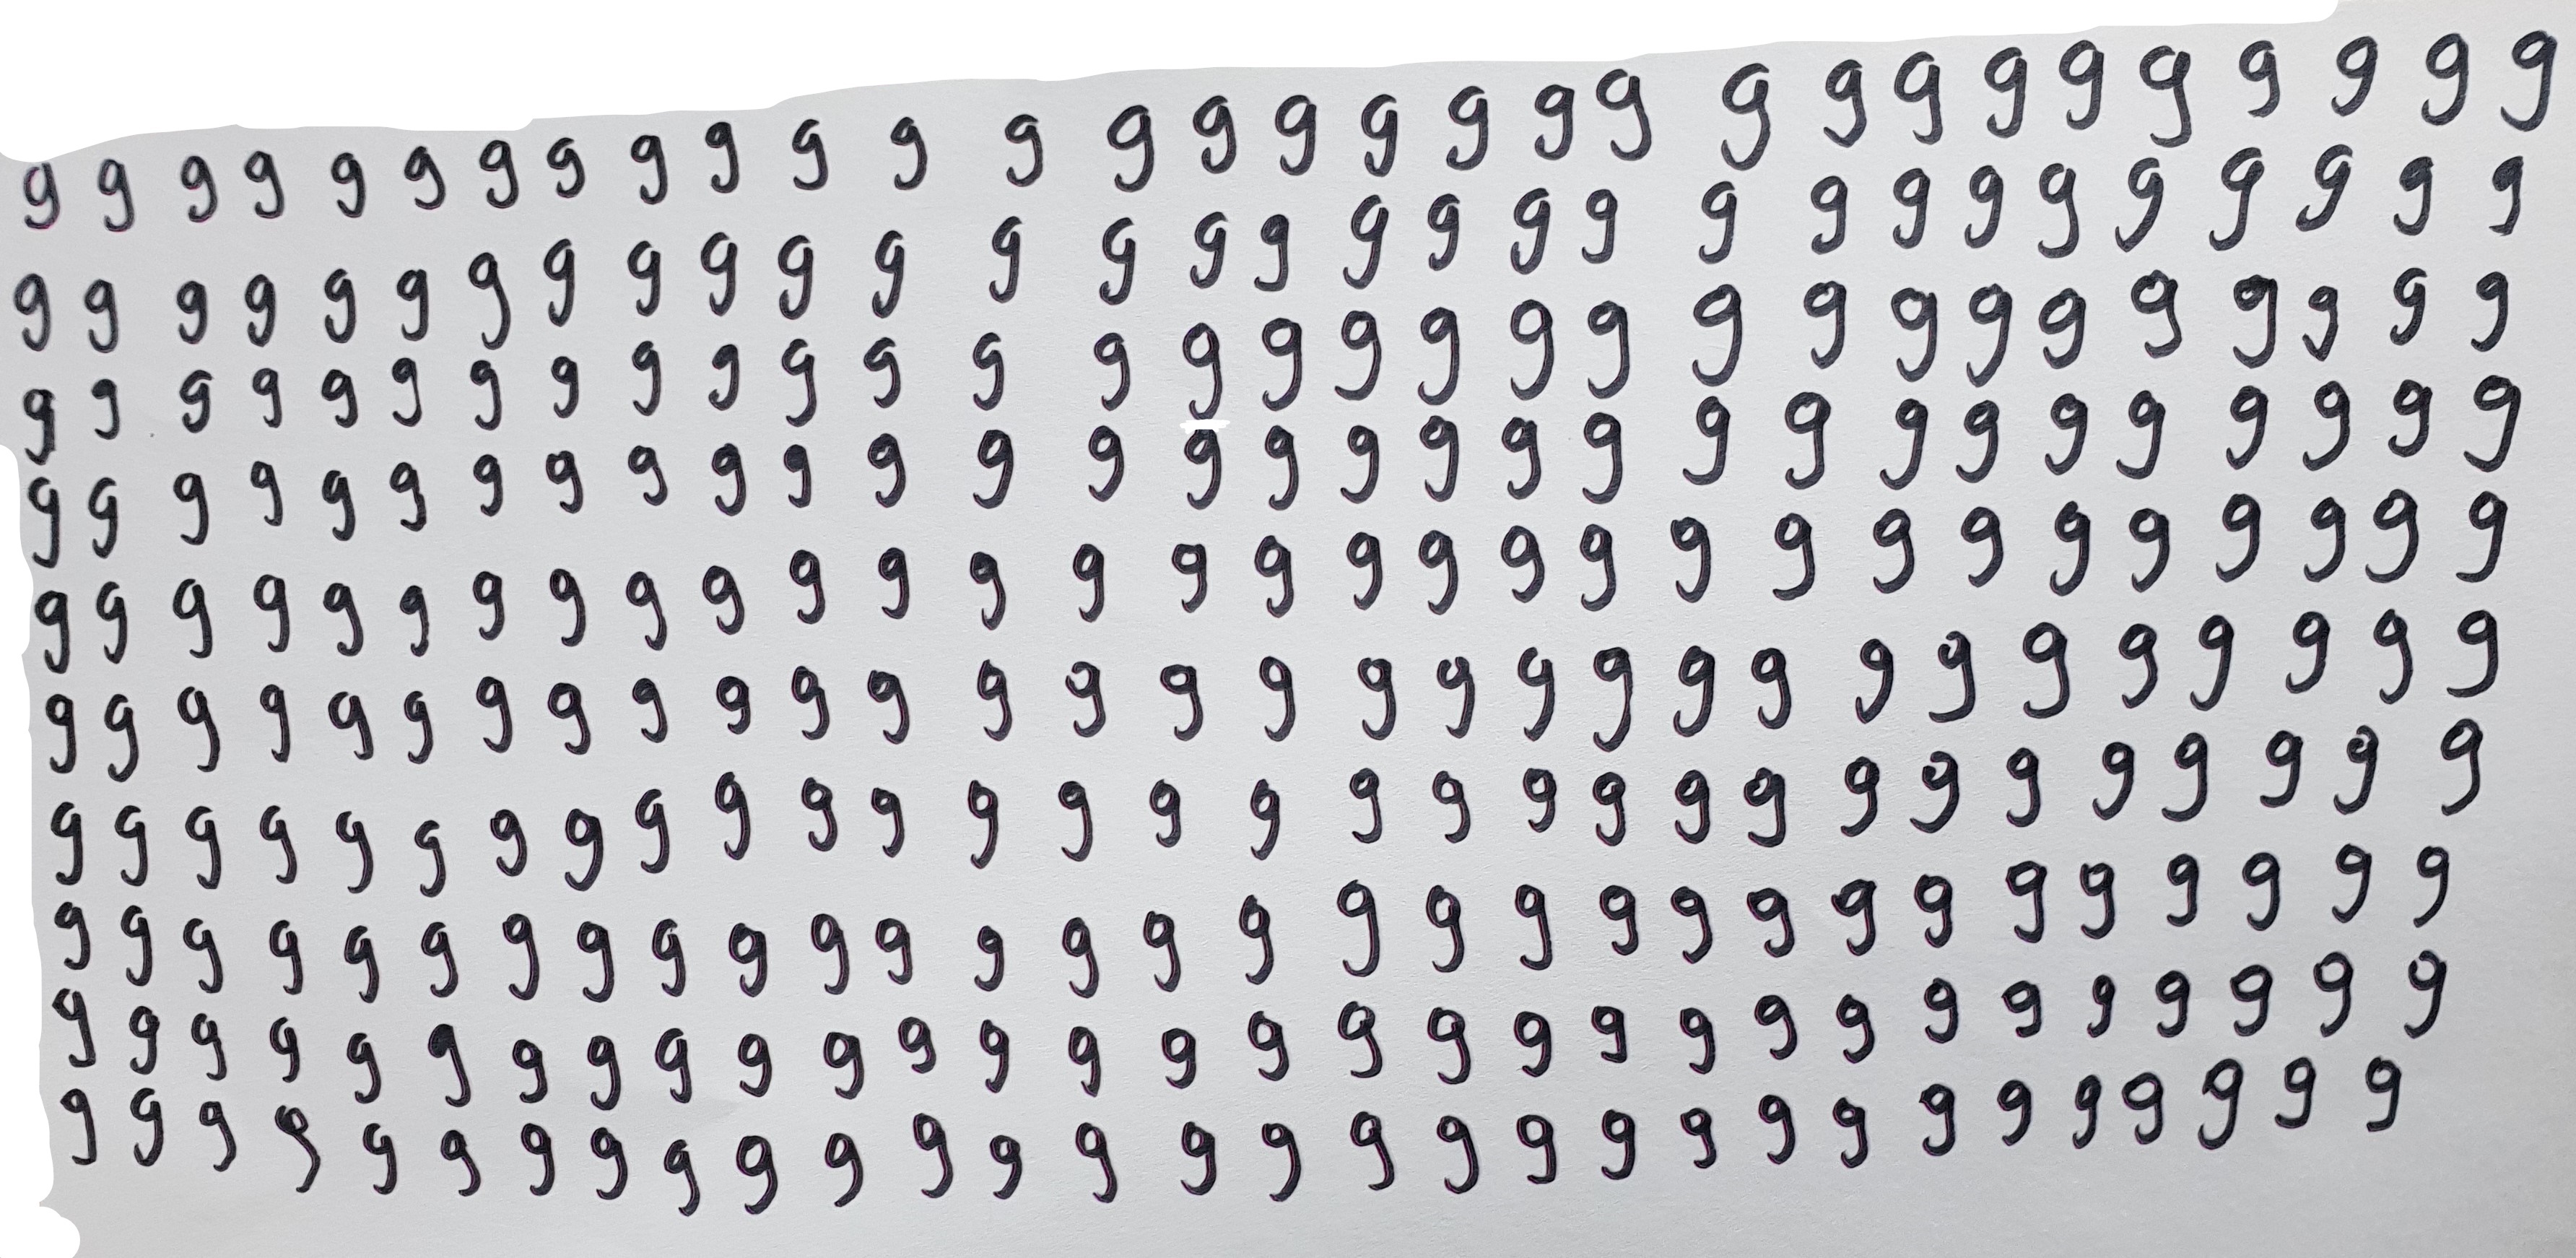 9 9 9 9 9 9 9 9 9 9 9 9 9 9 9 9 9 9 9 9 9 9 9 9 9 9 9 9 9 9
9 9 9 9 9 9 9 9 9 9 9 9 9 9 9 9 9 9 9 9 9 9 9 9 9 9 9 9 9 9
9 9 9 9 9 9 9 9 9 9 9 9 9 9 9 9 9 9 9 9 9 9 9 9 9 9 9 9 9 9
9 9 9 9 9 9 9 9 9 9 9 9 9 9 9 9 9 9 9 9 9 9 9 9 9 9 9 9 9 9
9 9 9 9 9 9 9 9 9 9 9 9 9 9 9 9 9 9 9 9 9 9 9 9 9 9 9 9 9 9
9 9 9 9 9 9 9 9 9 9 9 9 9 9 9 9 9 9 9 9 9 9 9 9 9 9 9 9 9 9
9 9 9 9 9 9 9 9 9 9 9 9 9 9 9 9 9 9 9 9 9 9 9 9 9 9 9 9 9 9
9 9 9 9 9 9 9 9 9 9 9 9 9 9 9 9 9 9 9 9 9 9 9 9 9 9 9 9 9 9
9 9 9 9 9 9 9 9 9 9 9 9 9 9 9 9 9 9 9 9 9 9 9 9 9 9 9 9 9 9
9 9 9 9 9 9 9 9 9 9 9 9 9 9 9 9 9 9 9 9 9 9 9 9 9 9 9 9 9 9